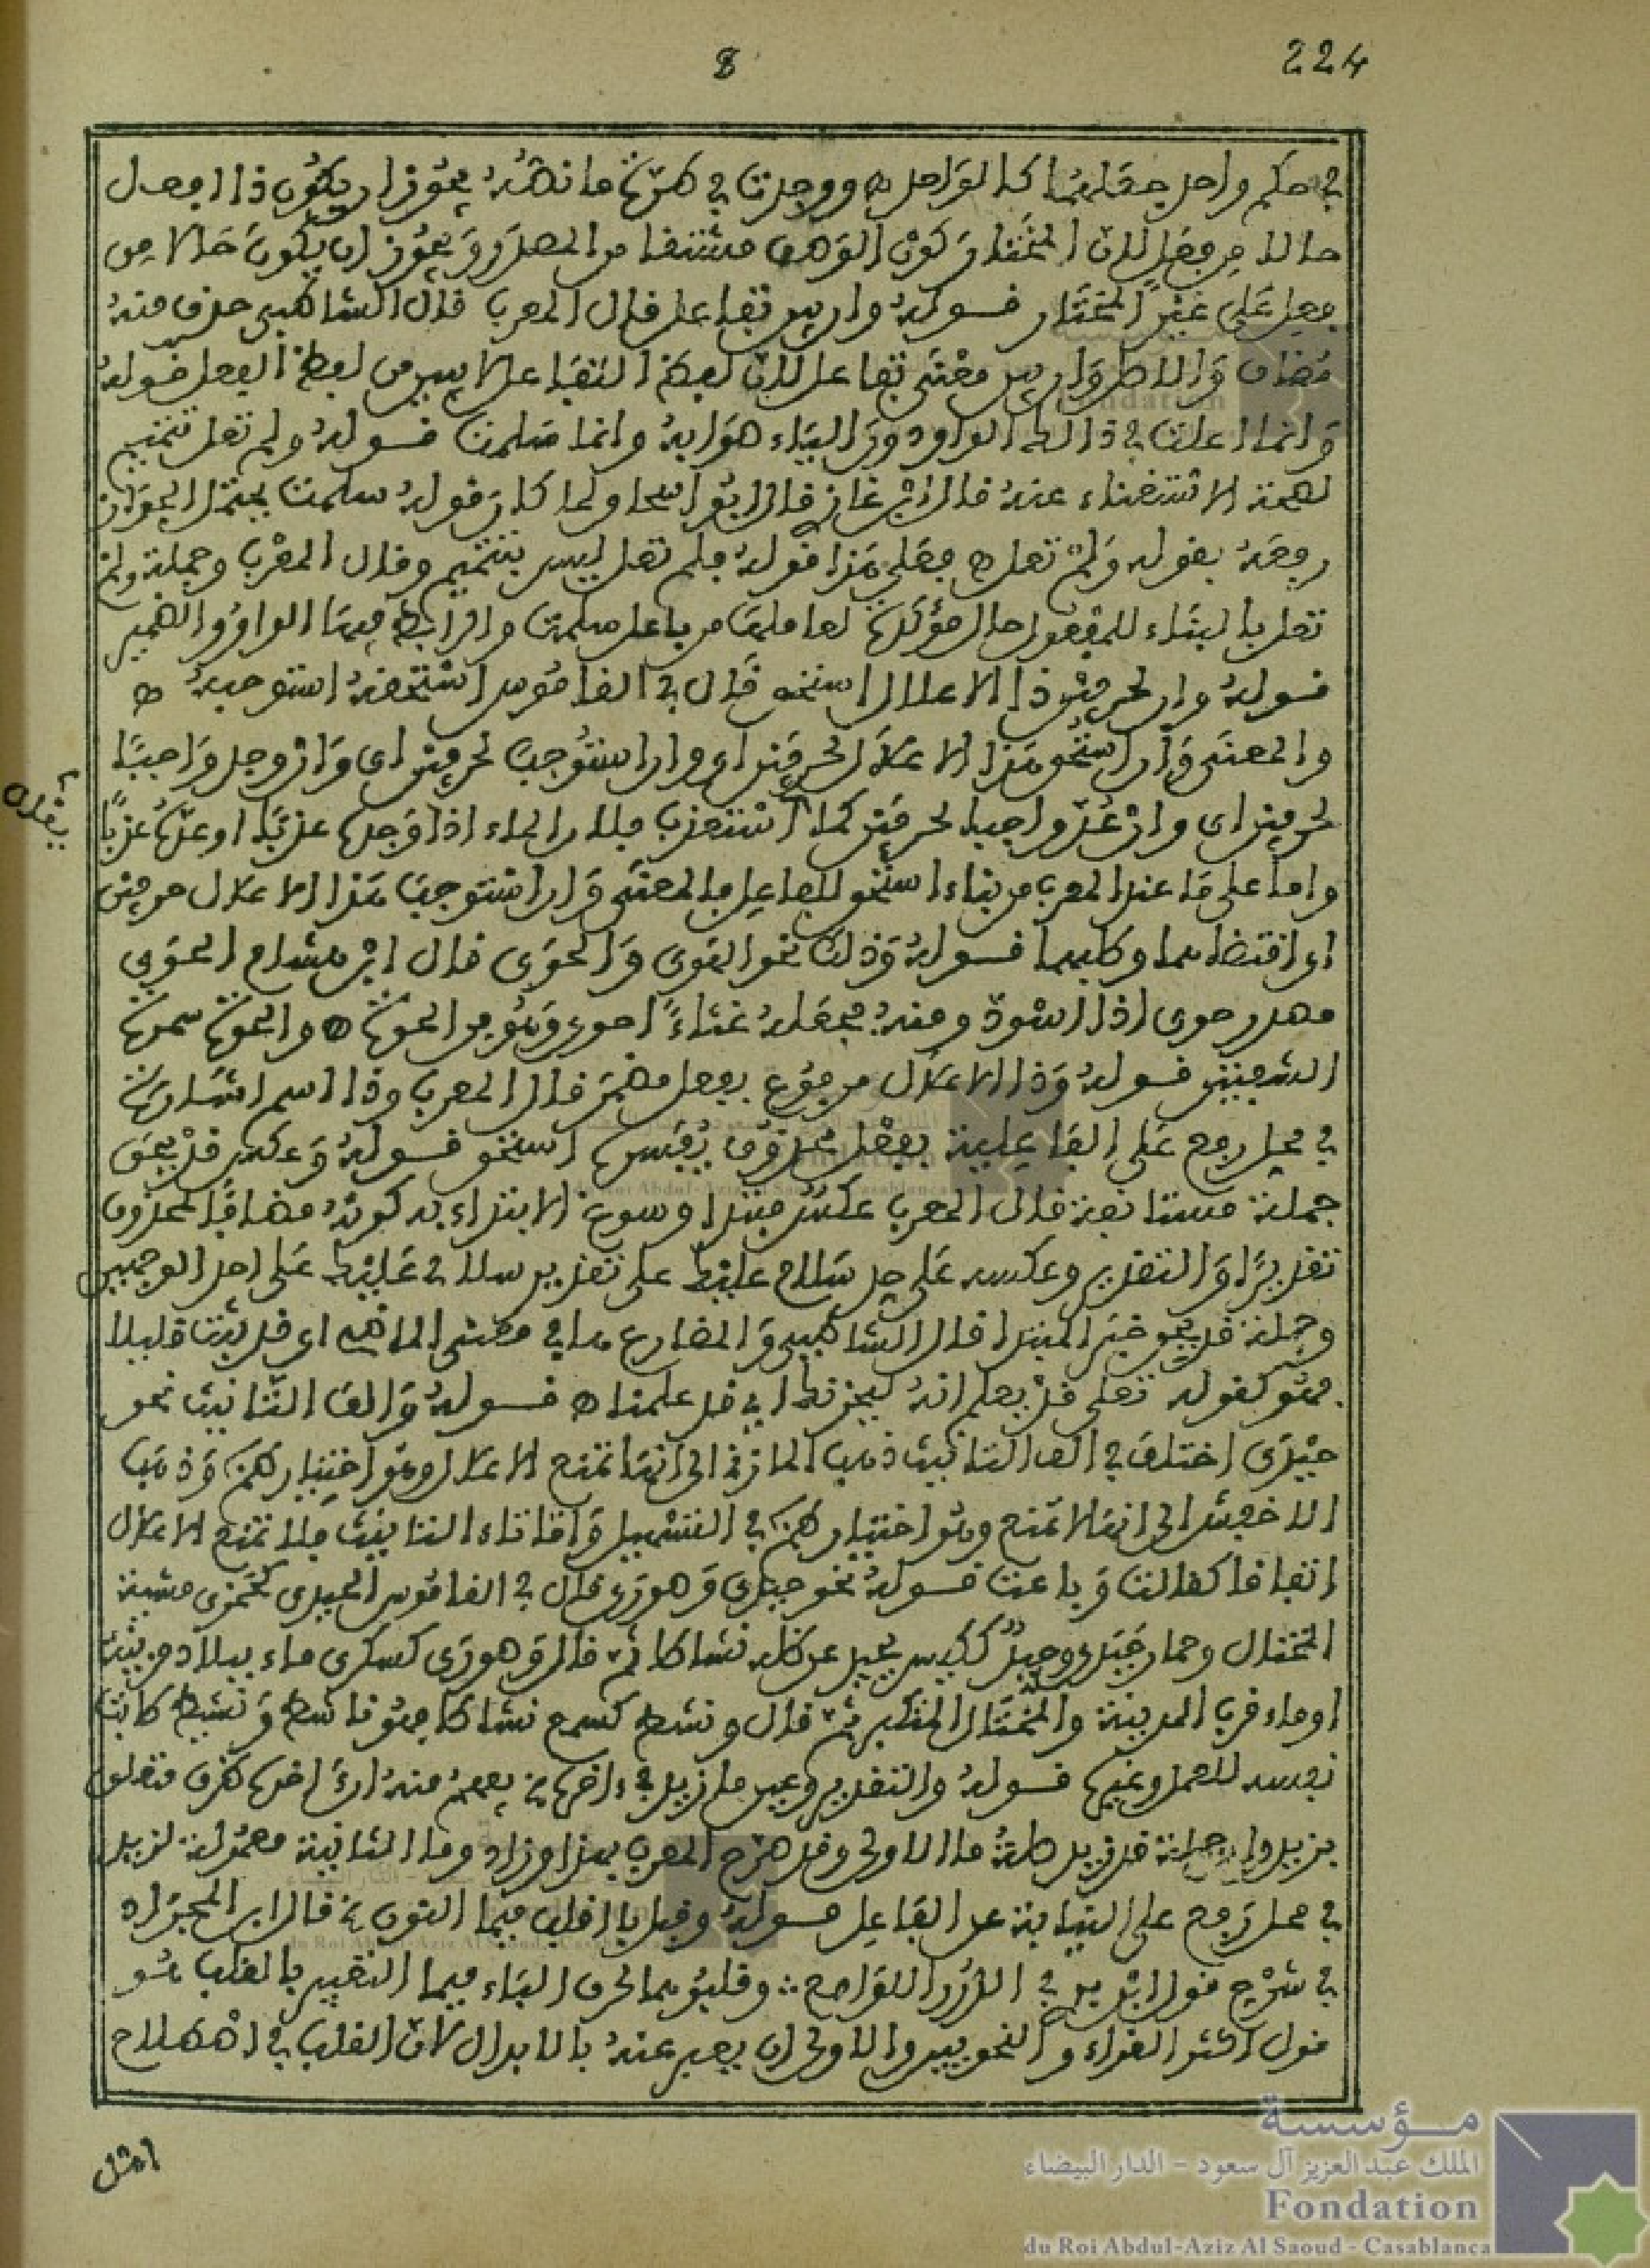 224
8
في حكم واحد جعلهما كالواحد ه ووجدت في طرة ما نصه يجوز ان يكون ذا افعل
حالا من فعل لان المختار كون الوصف مشتقا من المصدر ويجوز ان يكون حالا من
فعل على غير المختار قـــوله وان يبن تفاعل قال المعرب قال الشاطبي حذف منه
مضاف والاصل وان يبن معنى تفاعل لان لفظ التفاعل لا يبين من لفظ افتعل قـوله
وانما اعلت في ذالك الواو دون الياء هو ابه وانما سلمت قـــوله ولم تعل تتميم
لصحة الاستغناء عنه قال ابن غاز قال ابو اسحاق ولما كان قوله سلمت يحتمل الجواز
رفعه بقوله ولم تعل ه فعلى هذا قوله فلم تعل ليس بتتميم وقال المعرب وجملة ولم
تعل بالبناء للمفعول حال مؤكدة لعاملها من فاعل سلمت والرابط فيها الواو والضمير
قـــوله وان لحرفين ذا الاعلال استحق قال في القاموس استحقه استوجبه ه
والمعنى وان استحق هذا الاعلال لحرفين اي وان استوجب لحرفين اي وان وجد واجبا
لحرفين اي وان عد واجبا لحرفين كما استعذب فلان الماء اذا وجده عذبا او عده عذبا
واما على ما عند المعرب من بناء استحق للفاعل فالمعنى وان استوجب هذا الاعلال حرفين
اي اقتضاهما وطلبهما قـــوله وذلك نحو الهوى والحوى قال ابن هشام الحوى
مصدر حوى اذا اسود ومنه فجعله غثاء احوى وهو من الحوة ه والحوة سمرة
الشفتين قـــوله وذا الاعلال مرفوع بفعل مضمر قال المعرب وذا اسم اشارة
في محل رفع على الفاعلية بفعل محذوف يفسره استحق قـــوله وعكس قد يحق
جملة مستانفة قال المعرب عكس مبتدا وسوغ الابتداء به كونه مضافا لمحذوف
تقديرا والتقدير وعكسه على حد سلام عليك على تقدير سلامي عليك على احد الوجهين
وجملة قد يحق خبر المبتدا قال الشاطبي والمضارع هنا في معنى الماضي اي قد ثبت قليلا
فهو كقوله تعلى قد يعلم انه ليحزنك اي قد علمنا ه قـــوله والف التانيث نحو
حيدى اختلف في الف التانيث ذهب المازني الى انها تمنع الاعلال وهو اختياره هنا وذهب
الاخفش الى انها لا تمنع وهو اختياره في التسهيل واما تاء التانيث فلا تمنع الاعلال
اتفاقا كقالت وباعت قـــوله نحو حيدى وصورى قال في القاموس الحيدى كجمزى مشية
المختال وحمار حيدى وحيد ككيس يحيد عن ظله نشاطا ثم قال وصورى كسكرى ماء ببلاد مزينة
او ماء قرب المدينة والمختال المتكبر ثم قال ونشط كسمع نشاطا فهو ناشط ونشيط طابت
نفسه للعمل وغيره قـــوله والتقدير وعين ما زيد في ءاخره الخ يفهم منه ان اخره ظرف متعلق
بزيد وان جملة قد زيد صلة ما الاولى وقد صرح المعرب بهذا وزاد وما الثانية معمولة لزيد
في محل رفع على النيابة عن الفاعل قـــوله وقبل با اقلب ميما النون الخ قال ابن المجراد
في شرح قول ابن بري في الدرر اللوامع ∴ وقلبوهما لحرف الباء ميما التعبير بالقلب هو
قول اكثر القراء والنحويين والاولى ان يعبر عنه بالابدال لان القلب في اصطلاح
اهل
مؤسسة
الملك عبد العزيز آل سعود - الدار البيضاء
Fondation
du Roi Abdul-Aziz Al Saoud - Casablanca